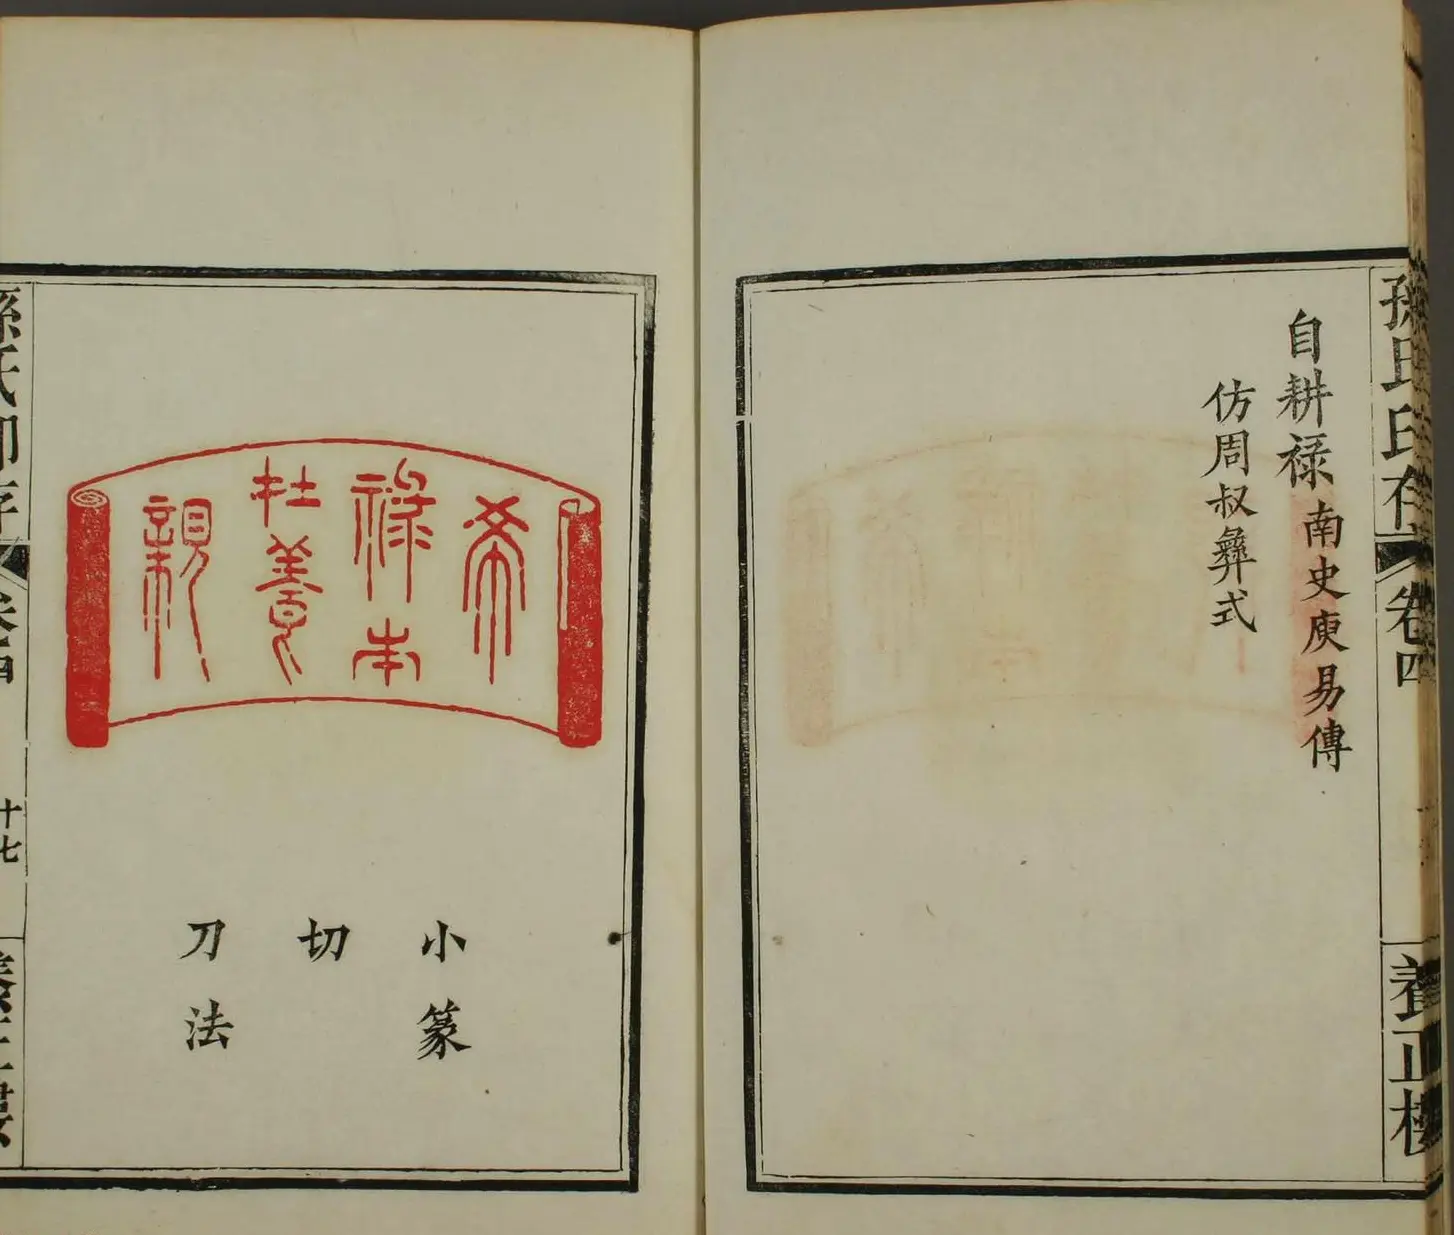 孫氏印存
卷四
養正樓
自耕祿南史庾易傳
仿周叔彝式
希
祿本
在養
親
小篆
切
刀法
孫氏印存
卷四
十七
養正樓